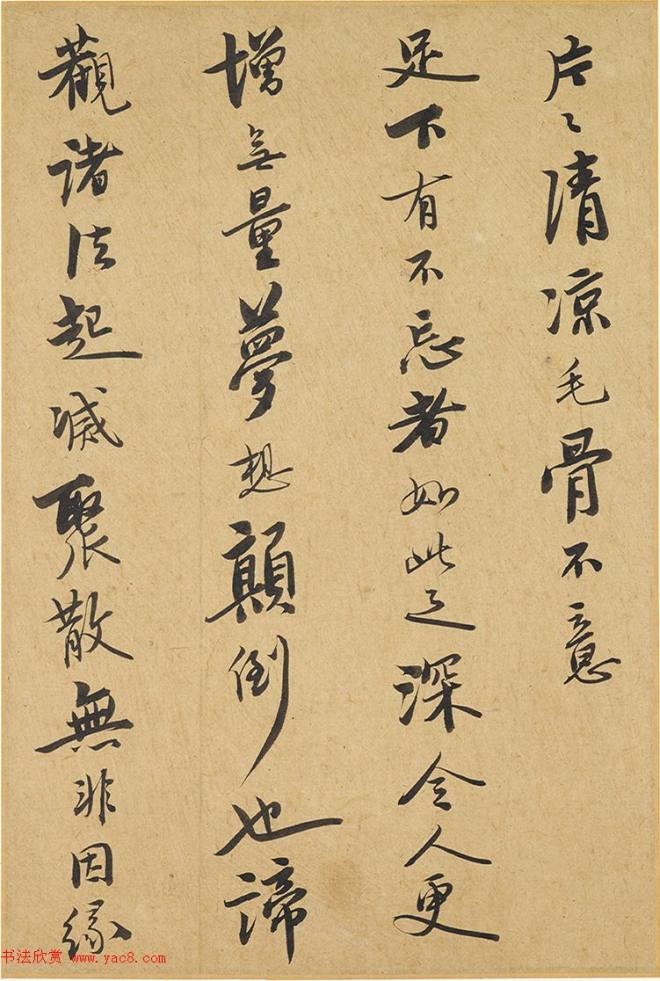 片〻清凉毛骨不意
足下有不忘者如此之深令人更
増無量夢想顛倒也諦
觀諸法起滅聚散無非因緣
书法欣赏 www.yac8.com